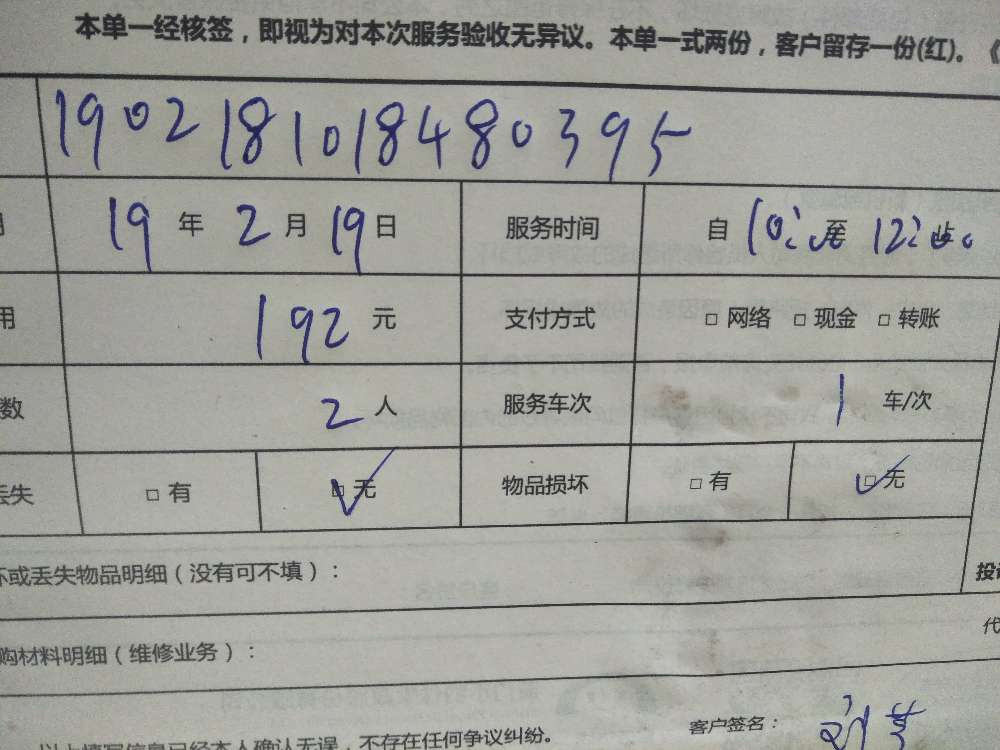 本单一经核签，即视为对本次服务验收无异议。本单一式两份，客户留存一份(红)。《
190218101848039 5
19 年 2 月 19 日 服务时间 自 10: 至 12:
用 192 元 支付方式 □ 网络 □ 现金 □ 转账
数 2 人 服务车次 1 车/次
丢失 □ 有 □ 无 物品损坏 □ 有 □ 无
坏或丢失物品明细（没有可不填）： 投
购材料明细（维修业务）： 代
以上填写信息已经本人确认无误，不存在任何争议纠纷。 客户签名： 刘